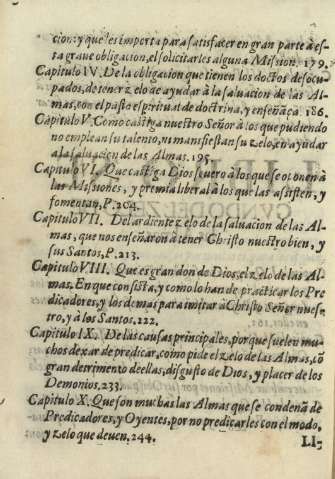 cion: y que les importa para satisfacer en gran parte à es-
ta grave obligacion, el solicitarles alguna Mission. 179.
Capitulo IV. De la obligacion que tienen los doctos desocu-
pados, de tener zelo de ayudar à la saluacion de las Al-
mas, con el pasto espiritual de doctrina, y enseñãça. 186.
Capitulo V. Como castiga nuestro Señor à los que pudiendo
no emplean su talento, ni manifiestan su zelo, en ayudar
a la saluacion de las Almas. 195.
Capitulo VI. Que castiga Dios seuero à los que se oponen à
las Missiones, y premia liberal à los que las assisten, y
fomentan, P. 204.
Capitulo VII. Del ardiente zelo de la saluacion de las Al-
mas, que nos enseñaron à tener Christo nuestro bien, y
sus Santos, P. 213.
Capitulo VIII. Que es gran don de Dios, el zelo de las Al-
mas. En que consista, y como lo han de practicar los Pre
dicadores, y los demas para imitar à Christo Señor nues-
tro, y à los Santos. 222.
Capitulo IX. De las causas principales, porque suelen mu-
chos dexar de predicar, como pide el zelo de las Almas, cõ
gran detrimento de ellas, disgusto de Dios, y placer de los
Demonios. 233.
Capitulo X. Que son muchas las Almas que se condenã de
Predicadores, y Oyentes, por no predicarles con el modo,
y zelo que deuen. 244.
LI-